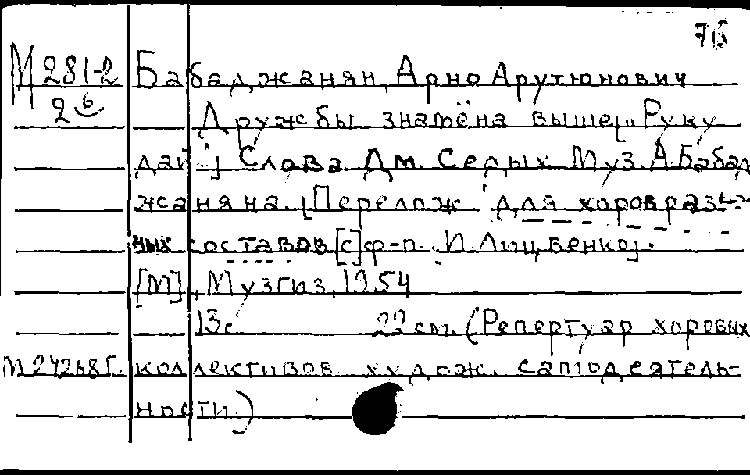 76
М 281-2 Бабаджанян, Арно Арутюнович
2 6
Дружбы знамёна выше[. "Руку
дай"] Слова Дм. Седых Муз. А. Бабад
жаняна. [Перелож. для хоров раз
ных составов [с] ф-п. И. Лицвенко].
[М], Музгиз, 1954
13 с. 22 см. (Репертуар хоровых
М24268г. коллективов худож. самодеятель-
ности)